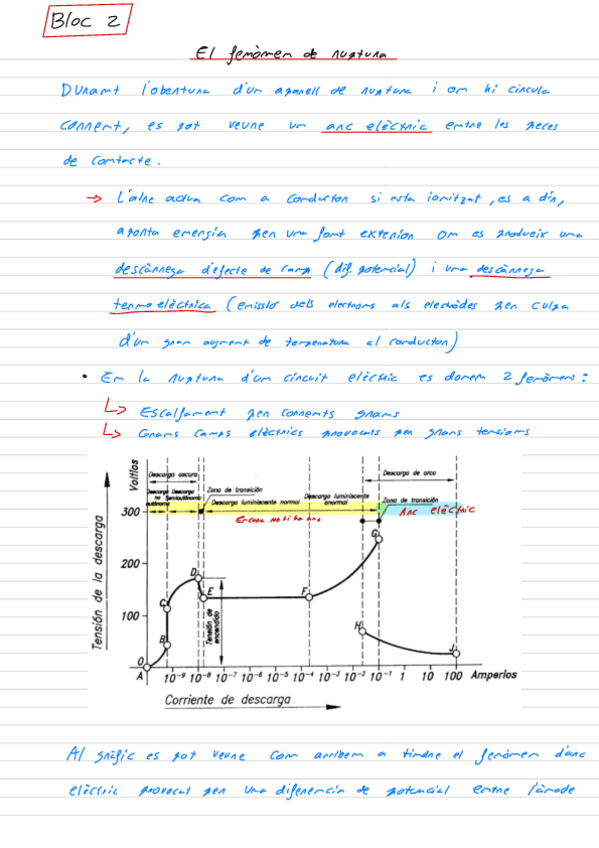 Bloc 2
El fenòmen de ruptura
Durant l'obertura d'un aparell de ruptura i on hi circula
corrent, es pot veure un arc elèctric entre les peces
de contacte.
→ L'aire actua com a conductor si esta ionitzat, es a dir,
aporta energia per una font exterior on es produeix una
descàrrega d'efecte de camp (dif. potencial) i una descàrrega
termoelèctrica (emissió dels electrons als electrodes per culpa
d'un gran augment de temperatura al conductor)
• En la ruptura d'un circuit elèctric es donen 2 fenòmens:
↳ Escalfament per corrents grans
↳ Grans camps elèctrics provocats per grans tensions
Voltios
Descarga oscura
Descarga no autónoma
Descarga Semiautónoma
Zona de transición
Descarga luminiscente normal
Descarga luminiscente anormal
Descarga de arco
Zona de transición
Encara no hi ha arc
Arc elèctric
Tensión de la descarga
300
200
100
0
A
B
C
D
E
F
G
H
J
Tensión de encendido
10⁻⁹ 10⁻⁸ 10⁻⁷ 10⁻⁶ 10⁻⁵ 10⁻⁴ 10⁻³ 10⁻² 10⁻¹ 1 10 100 Amperios
Corriente de descarga
Al gràfic es pot veure com arribem a tindre el fenòmen d'arc
elèctric provocat per una diferencia de potencial entre l'ànode